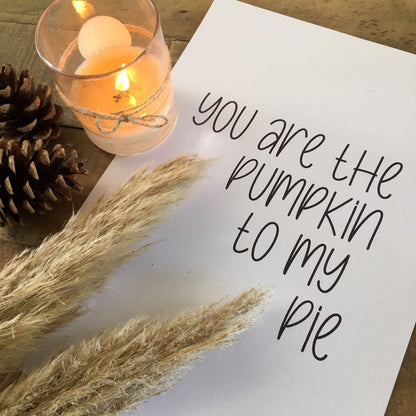 YOU ARE THE
PUMPKIN
TO MY
PIE